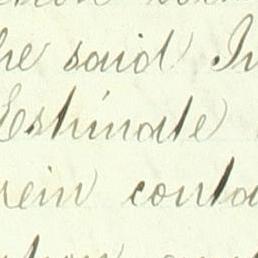 he said In
Estimate
rein conta